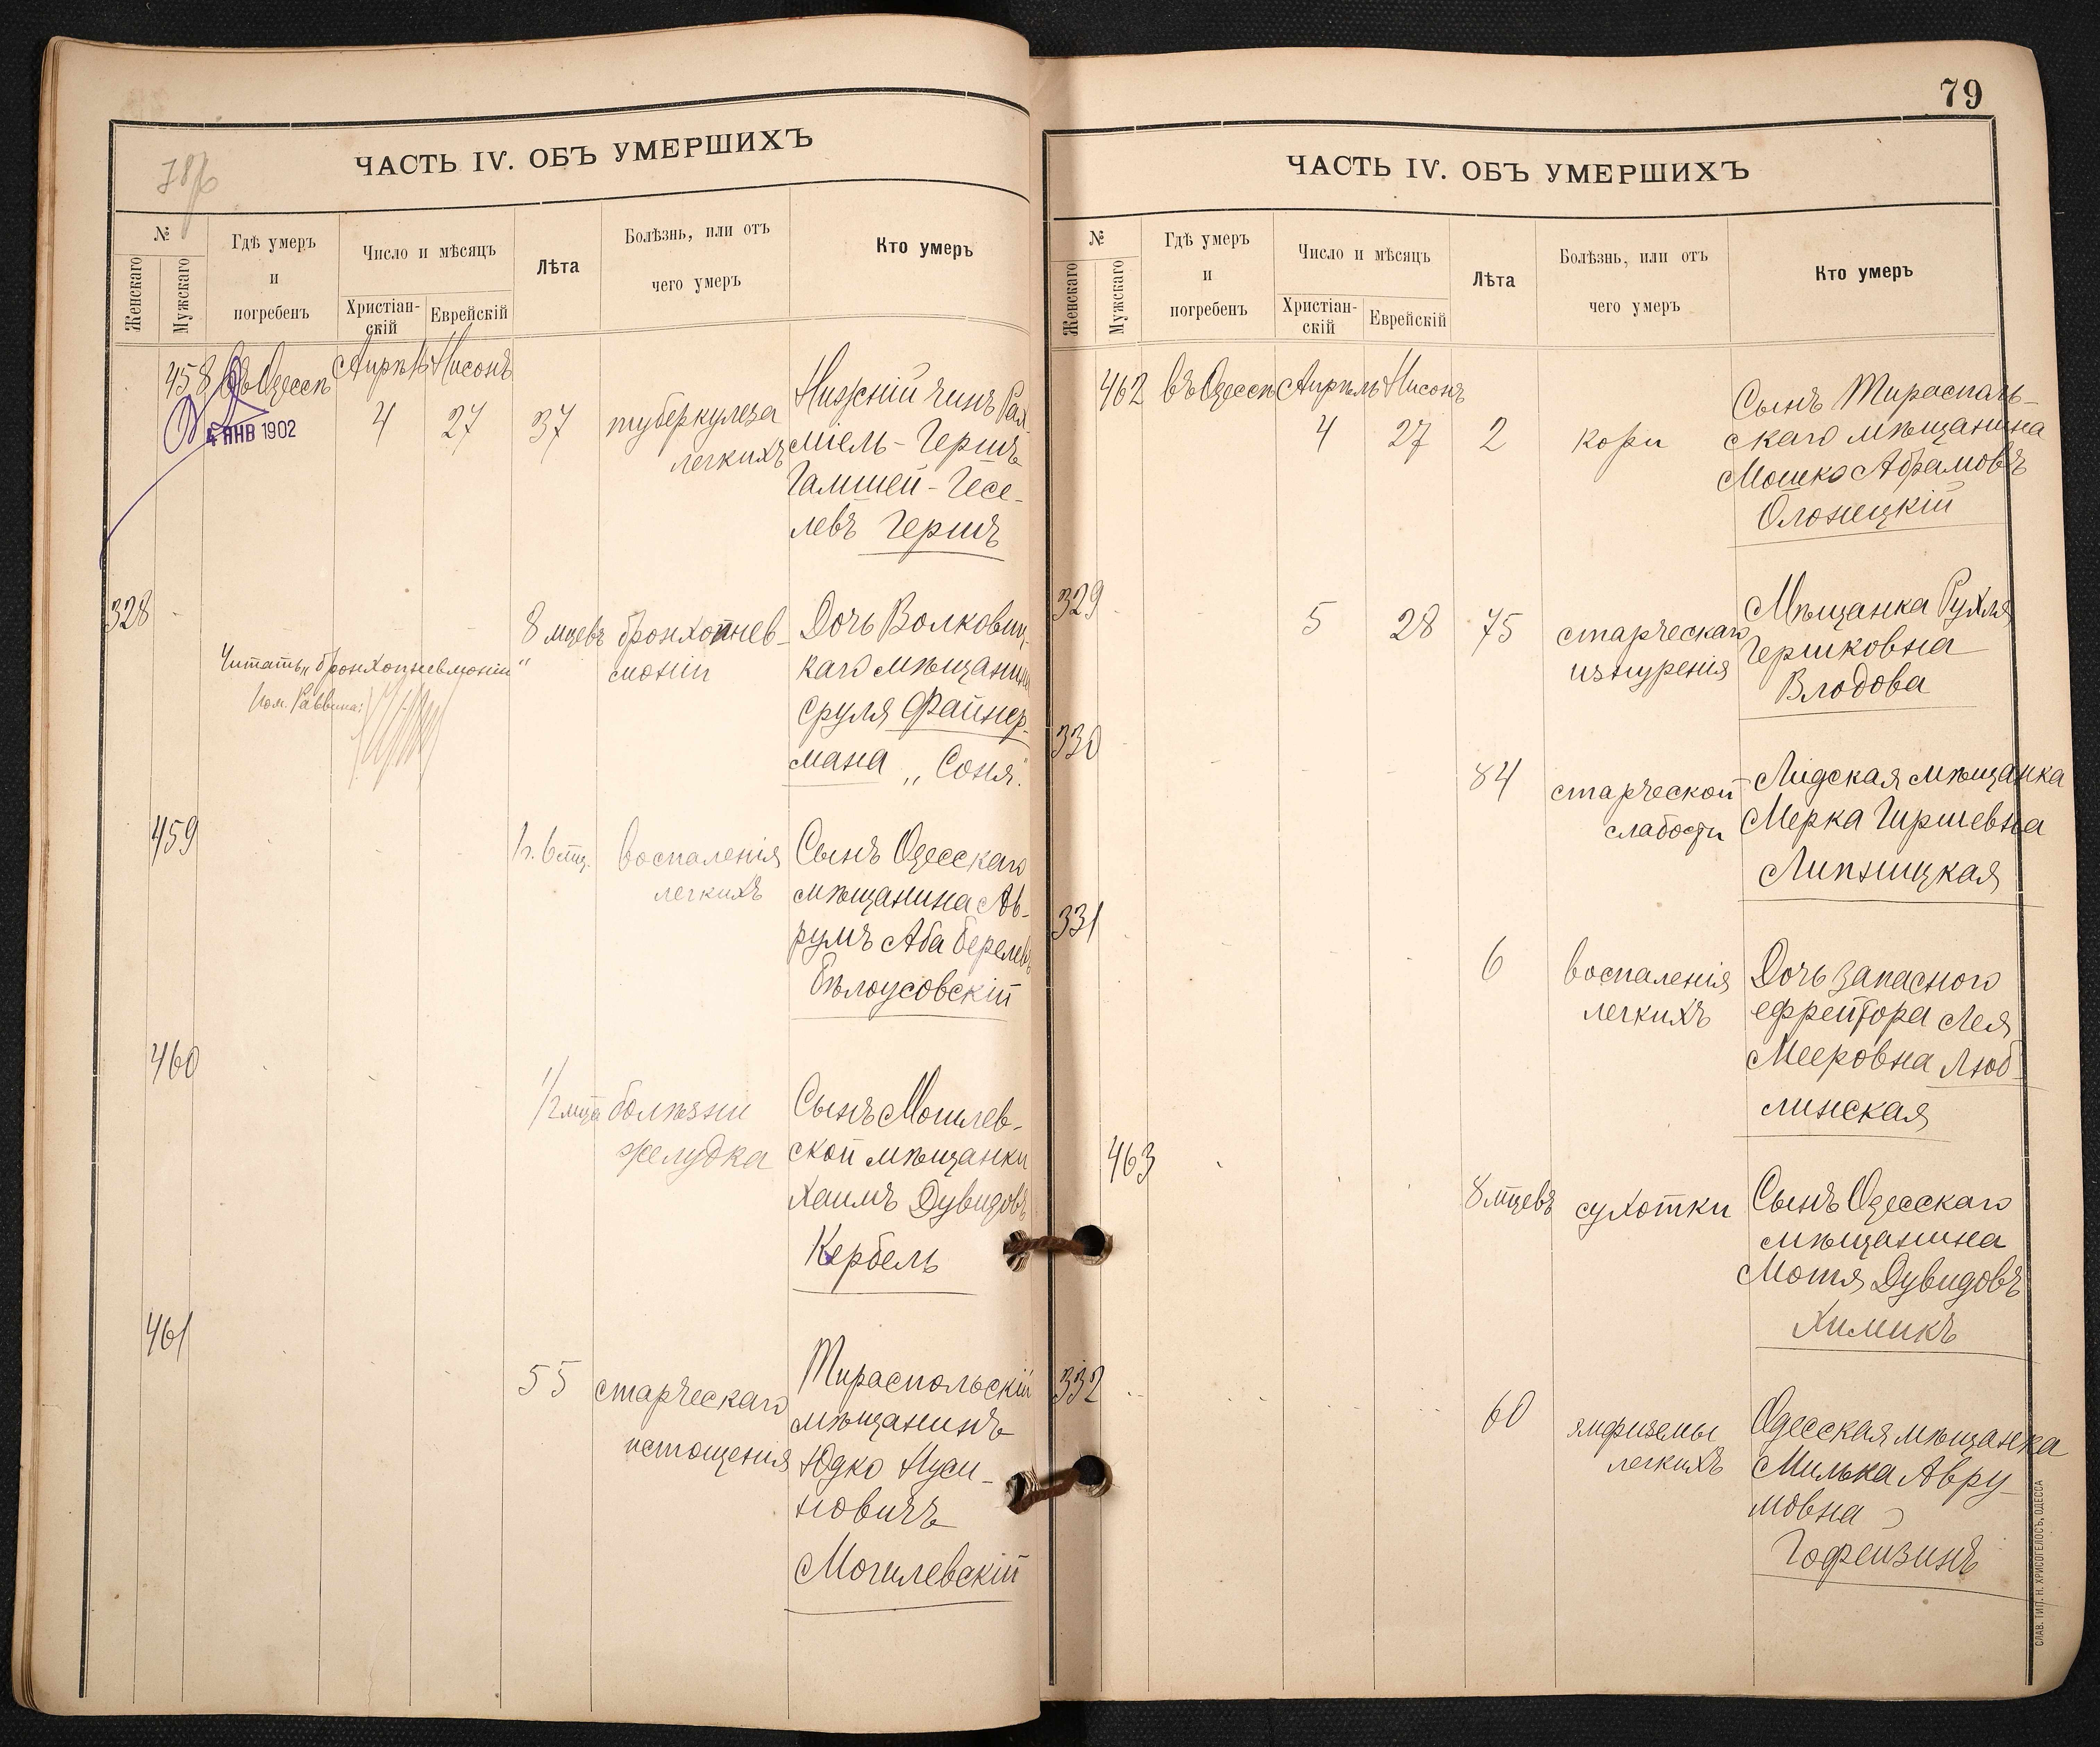 78 об
ЧАСТЬ IV. ОБЪ УМЕРШИХЪ
№
Женскаго
Мужскаго
Гдѣ умеръ
и
погребенъ
Число и мѣсяцъ
Христіан-
скій
Еврейскій
Лѣта
Болѣзнь, или отъ
чего умеръ
Кто умеръ
458 Въ Одессѣ Апрѣль Нисонъ
4 27 37 туберкулеза
легкихъ
4 ЯНВ 1902
Нижній чинъ
Гершъ
Гесе-
левъ Гершъ
328
8 мцевъ бронхопнев-
моніи
Дочь Волковиц-
каго мѣщанина
Сруля Файнер-
мана „Соня".
Читать „бронхопневмоніи"
Пом. Раввина:
459
1 г. 6 мц. воспаленія
легкихъ
Сынъ Одесскаго
мѣщанина Ав-
румъ Аба Берелевъ
Бѣлоусовскій
460
1/2 мца болѣзни
желудка
Сынъ Могилев-
ской мѣщанки
Хаимъ Дувидовъ
Кербель
461
55 старческаго
истощенія
Тираспольскій
мѣщанинъ
Юдко Нуси-
новичъ
Могилевскій
79
ЧАСТЬ IV. ОБЪ УМЕРШИХЪ
№
Женскаго
Мужскаго
Гдѣ умеръ
и
погребенъ
Число и мѣсяцъ
Христіан-
скій
Еврейскій
Лѣта
Болѣзнь, или отъ
чего умеръ
Кто умеръ
462 въ Одессѣ Апрѣль Нисонъ
4 27 2 кори
Сынъ Тираспаль-
скаго мѣщанина
Мошко Абрамовъ
Олонецкій
329
5 28 75 старческаго
изнуренія
Мѣщанка Рухля
Гершковна
Влодова
330
84 старческой
слабости
Лидская мѣщанка
Мерка Гиршевна
Липницкая
331
6 воспаленія
легкихъ
Дочь запасного
ефрейтора Лея
Мееровна Люб-
линская
463
8 мцевъ сухотки
Сынъ Одесскаго
мѣщанина
Мотя Дувидовъ
Химикъ
332
60 эмфиземы
легкихъ
Одесская мѣщанка
Милька Авру-
мовна
Гофензинъ
СЛАВ. ТИП. Н. ХРИСОГЕЛОСЪ, ОДЕССА